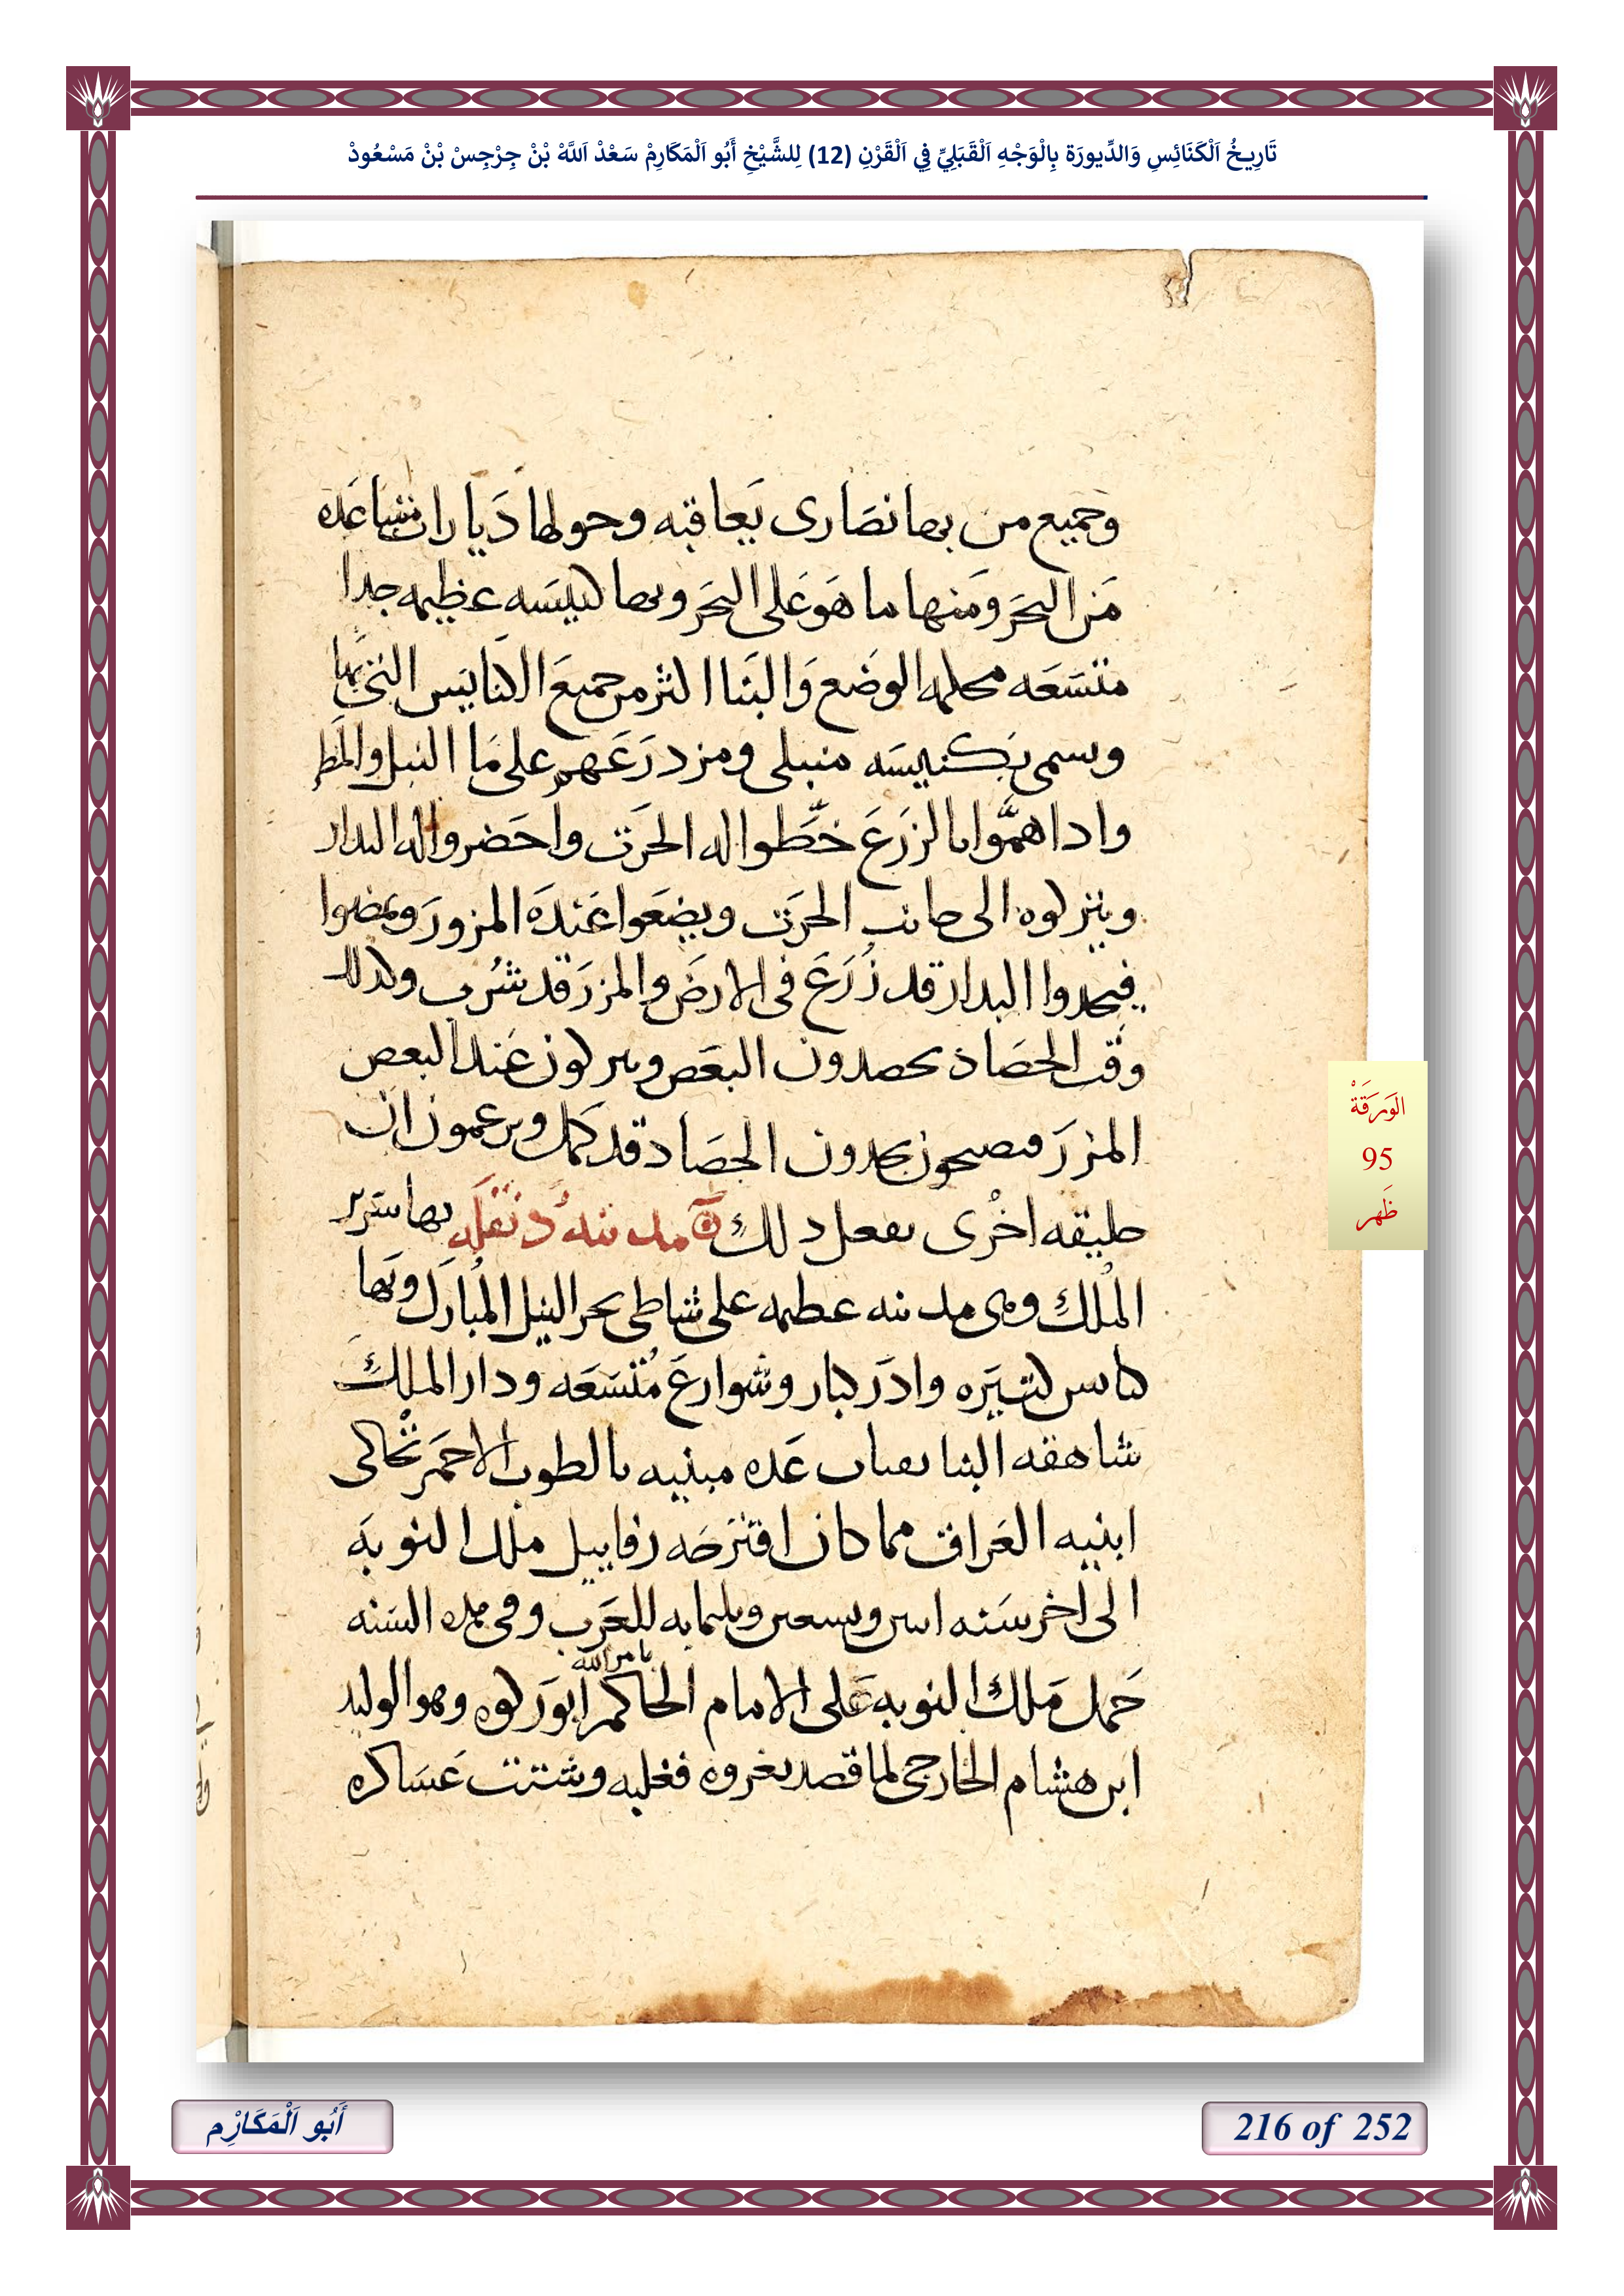 تَارِيخُ اَلْكَنَائِسِ وَالدِّيورَة بِالْوَجْهِ اَلْقَبَلِيِّ فِي اَلْقَرْنِ (12) لِلشَّيْخِ أَبُو اَلْمَكَارِمْ سَعْدْ اَللَّهْ بْنْ جِرْجِسْ بْنْ مَسْعُودْ
وجميع من بها نصَارى يَعاقبه وحولها دَيارات متباعَده
مَن البحَر ومَنها ما هَو عَلى البحَر وبها كنيسَه عظيمه جدا
متسَعَه محكمه الوضَع وَالبَنا اكثر من جميعَ الكنايسَ التي بها
وتسمى بَكنيسَه منبلى ومزدرَعَهم على مَا النيل والمَطر
وادا همُّوا بالزرَعَ خطَّطوا له الحرَت واحَضروا له البدار
وينزلوه الى جانب الحرَت ويضَعَوا عَندَه المزور وَيمضوا
فيجدوا البدار قد زُرَعَ في الارضَ والمزرَ قد شُرب وكدلك
وقت الحصَاد يحصدون البعَض ويتركون عَند البعض
المزرَ فيصبحون يجدون الحصَاد قد كَمل ويزعمون ان
طبقه اخرى تفعل دلك مدينه دُنقَله بها سرير
الملك وهي مدينه عظيمه على شاطى بحر النيل المُبارَك وبَها
كنايس كتيَره وادَر كبار وشوارعَ مُتسَعَه ودار الملك
شاهقه البنا بقباب عَده مبنيه بالطوب الاحمَر تُحاكى
ابنيه العَراق مما كان اقترَحَه رفاييل ملك النوبَه
الى اخر سَنه اتنين وتسعين وتلتمايه للعَرب وفي هده السَنه
حَمل مَلك النوبه عَلى الامام الحاكم بامر الله ابو رَكوه وهو الوليد
ابن هشام الخارجى لما قصد يغزوه فغلبه وشتت عَساكره
الوَرَقَةْ
95
ظَهر
أَبُو اَلْمَكَارْم
216 of 252